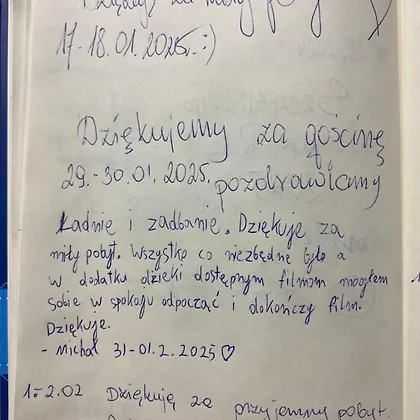 Dziękuję za miły
17-18.01.2025r. :)
Dziękujemy za gościnę
29.-30.01.2025.
pozdrawiamy
Ładnie i zadbanie. Dziękuje za
miły pobyt. Wszystko co niezbędne było a
w dodatku dzieki dostępnym filmom mogłem
sobie w spokoju odpocząć i dokończy film.
Dziękuje.
- Michał 31-01.2.2025 ♡
1-2.02 Dziękują za przyjemny pobyt.